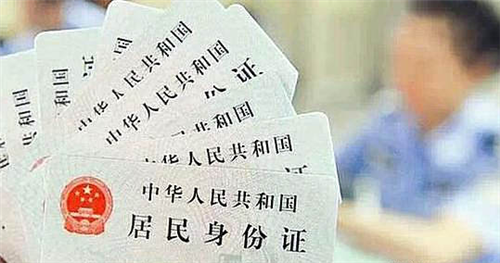 中华人民共和国
份证
中华人民共和国
中华人民共和国
证
中华人民共和国
居民身份证